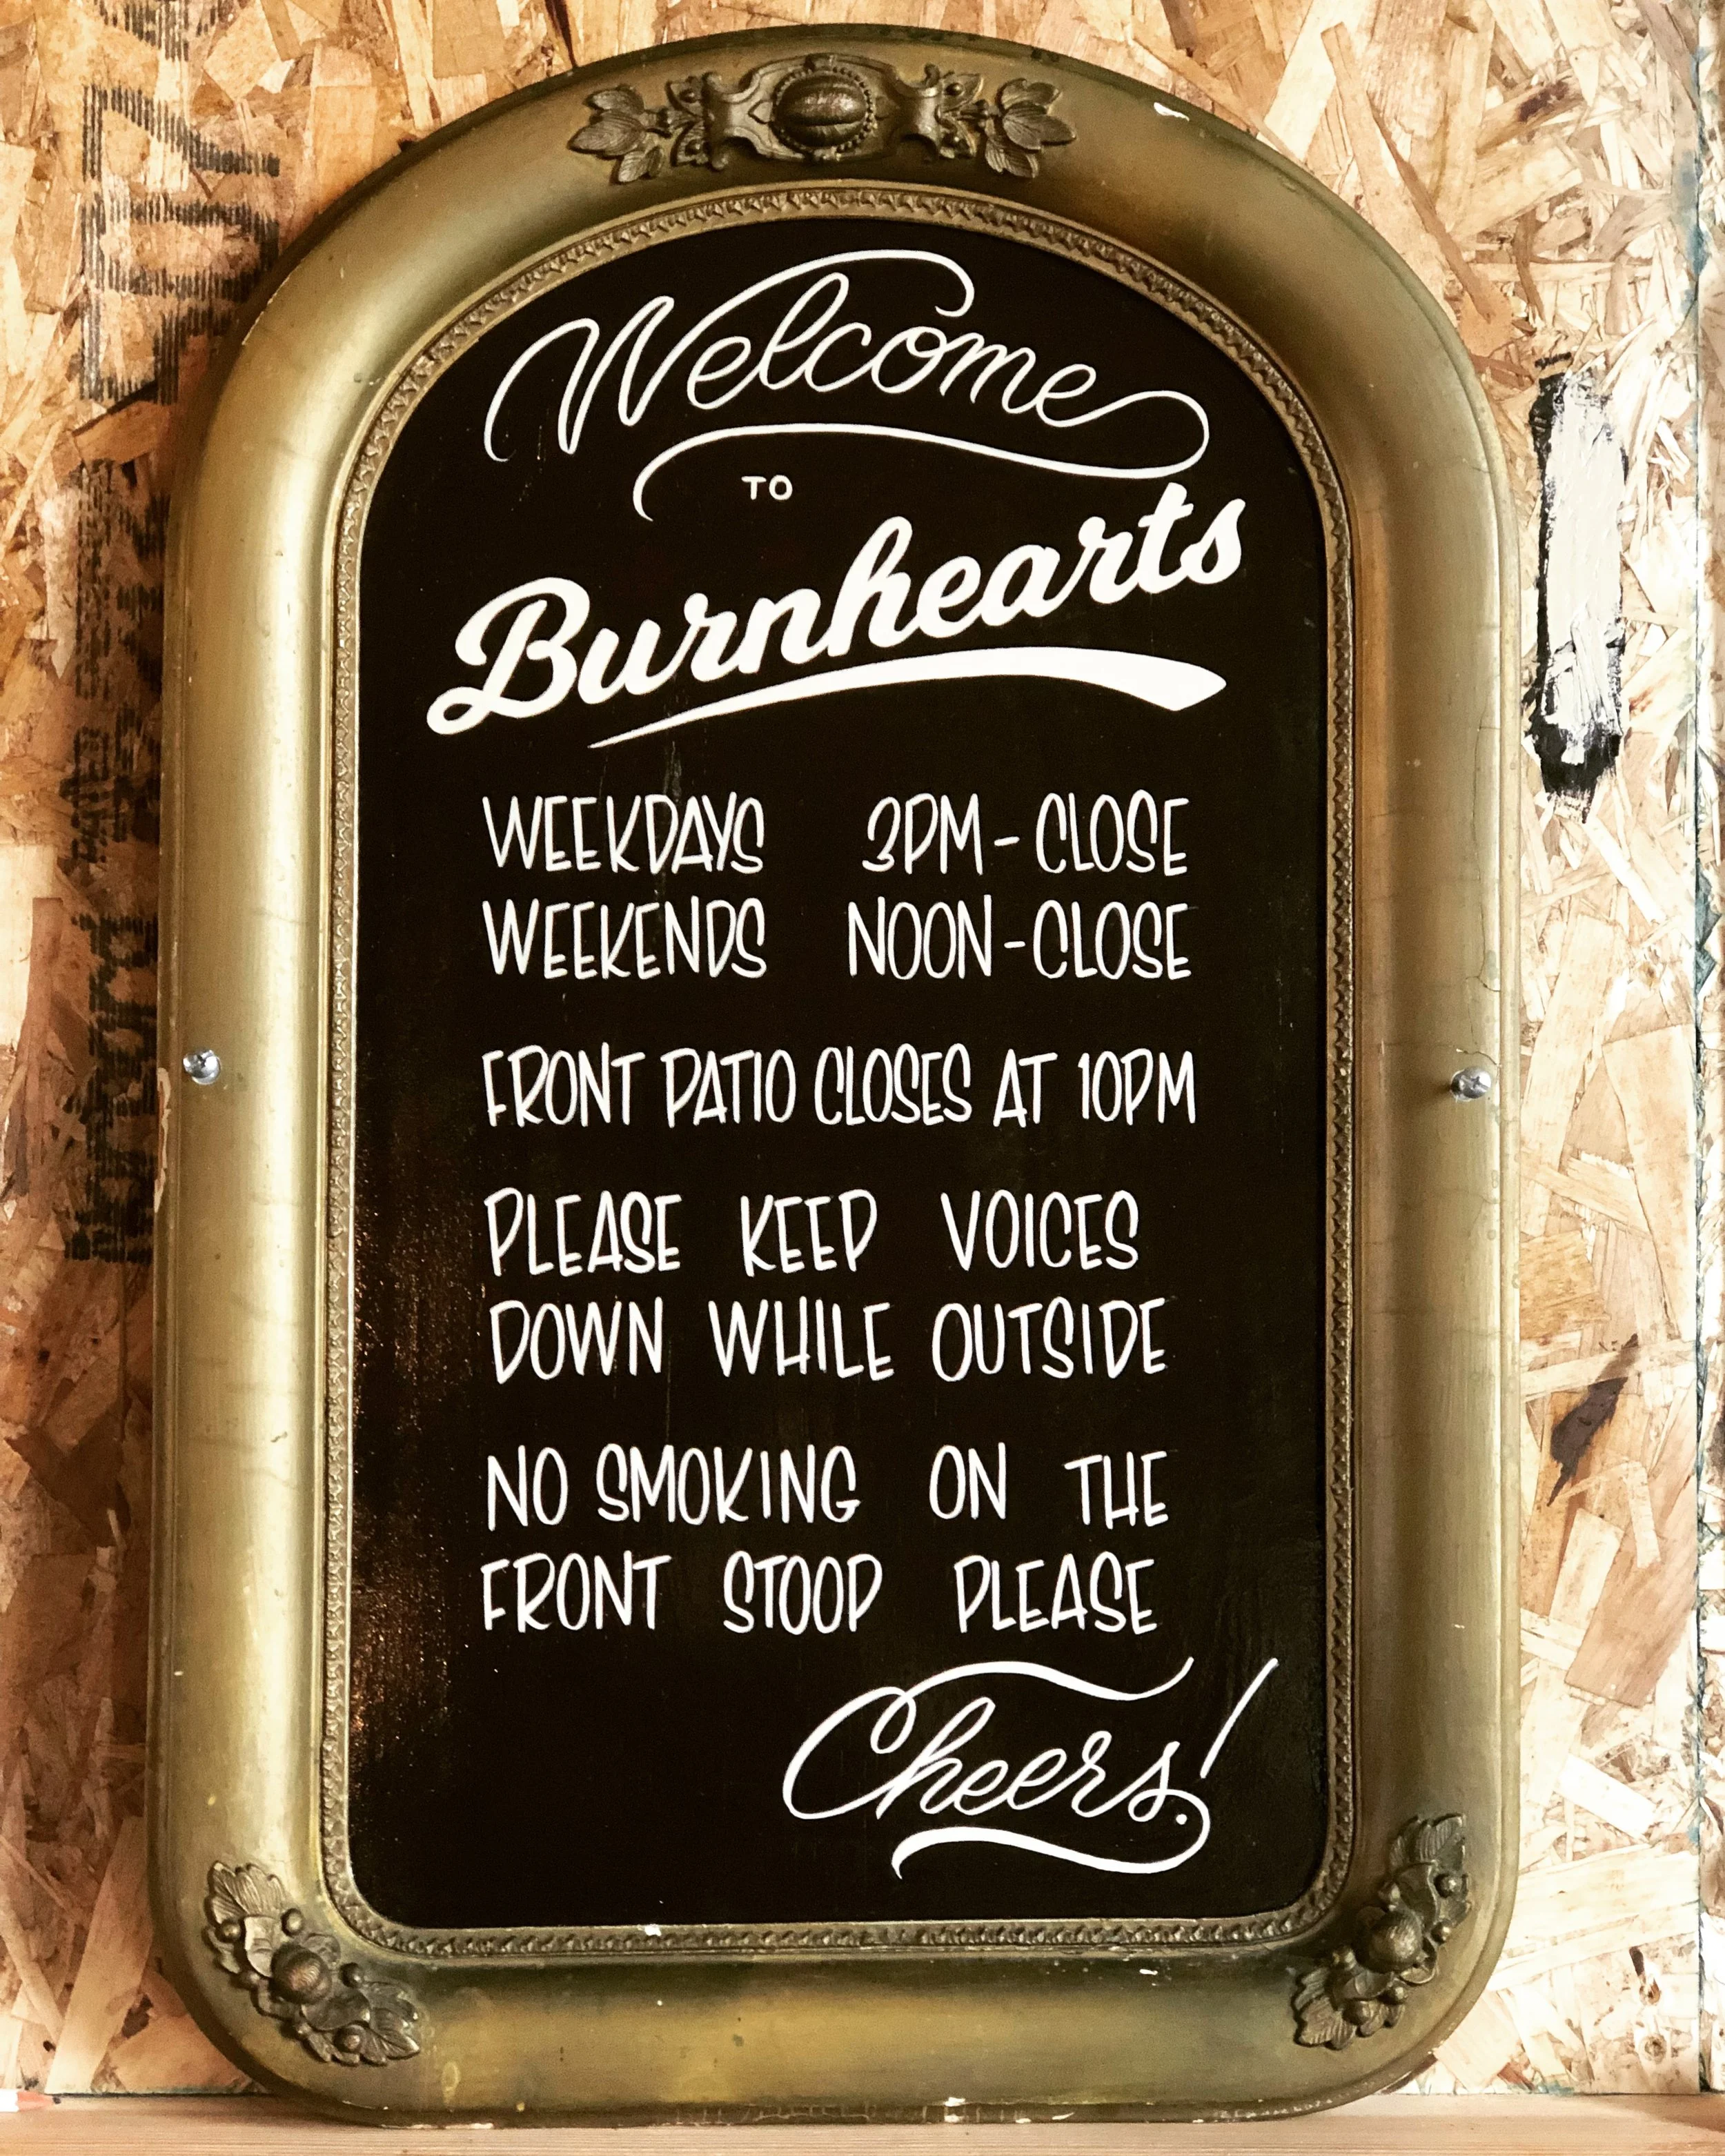 Welcome
TO
Burnhearts
WEEKDAYS 3PM - CLOSE
WEEKENDS NOON - CLOSE
FRONT PATIO CLOSES AT 10PM
PLEASE KEEP VOICES
DOWN WHILE OUTSIDE
NO SMOKING ON THE
FRONT STOOP PLEASE
Cheers!